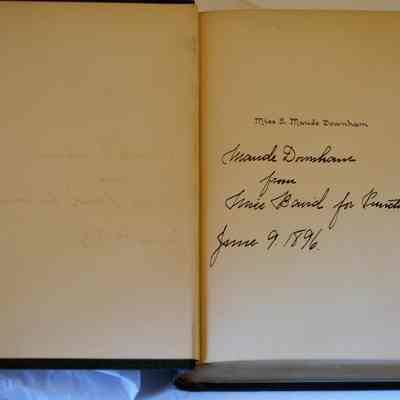 Miss S. Maude Downham
Maude Downham
from
Miss Baird for Puncti
June 9. 1896.